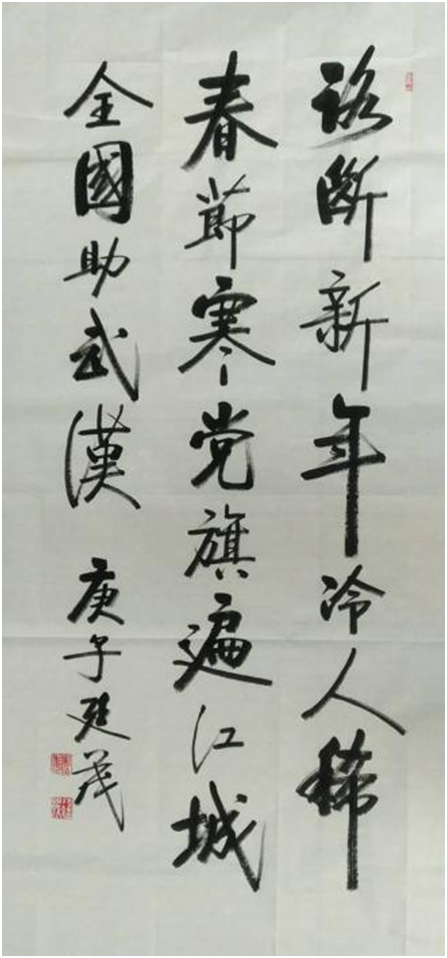 路断新年冷人稀
春節寒党旗遍江城
全國助武漢 庚子廷茂